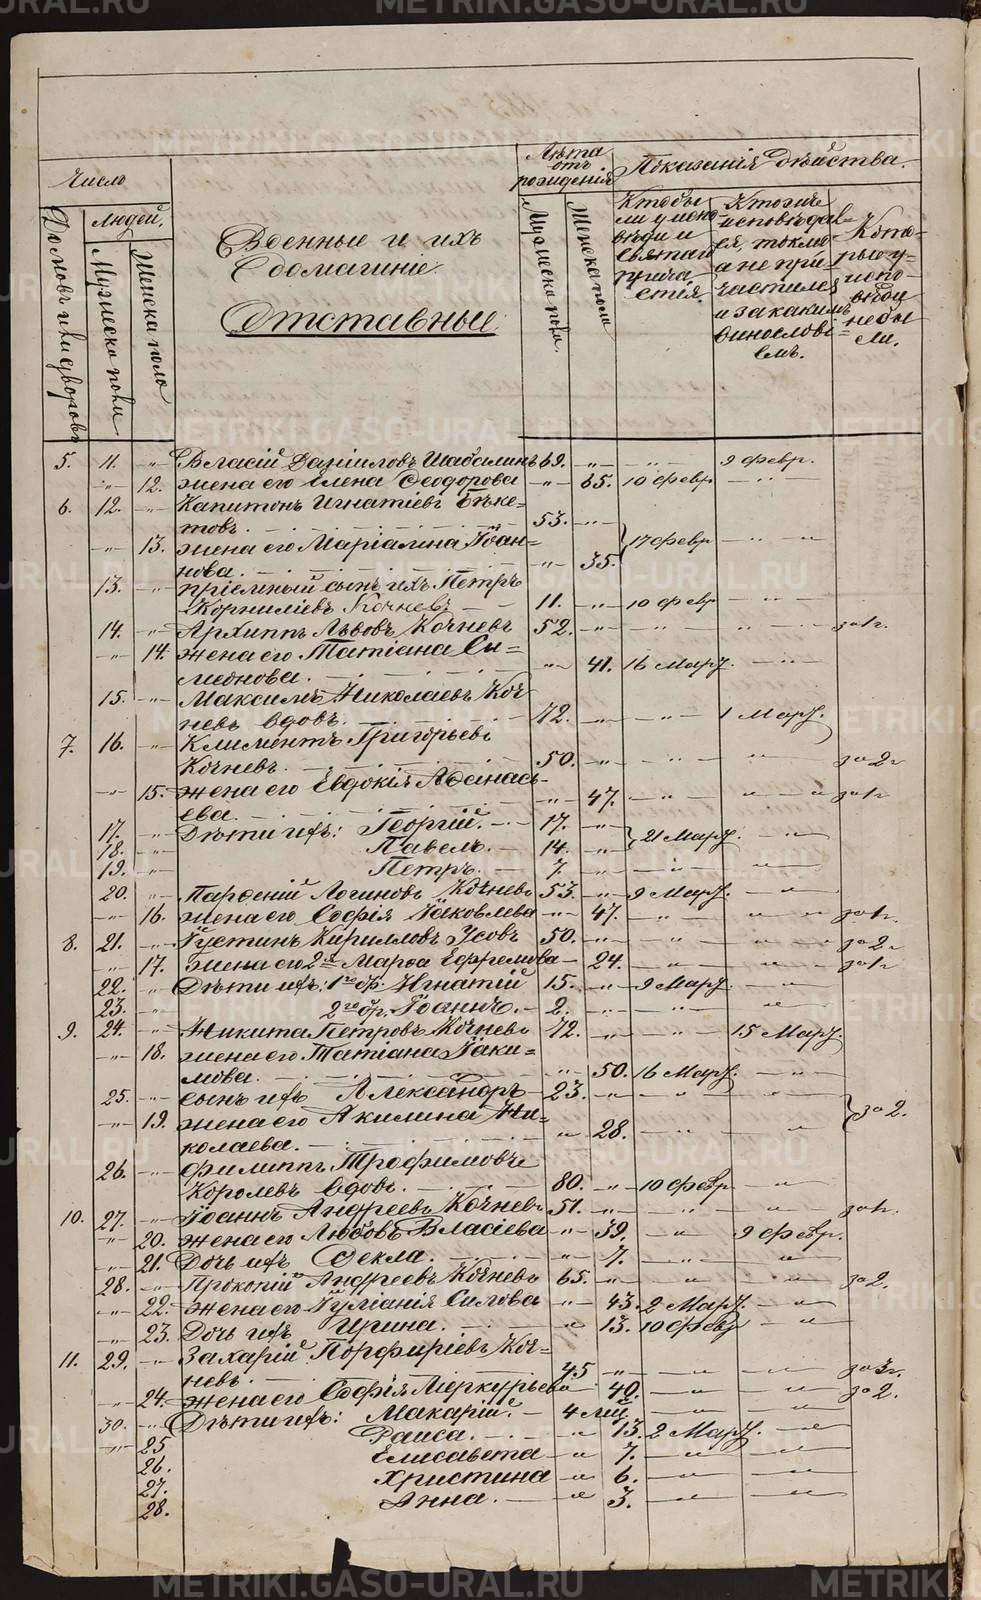 METRIKI.GASO-URAL.RU
Число
Домовъ или дворовъ
Людей.
Мужеска пола
Женска пола
Военные и ихъ
домашніе
Отставные
Лѣта
отъ
рожденія
Мужеска пола.
Женска пола
Показанія дѣйства.
Кто бы
ли у испо-
вѣди и
святаго
прича
стія.
Кто же
исповѣдал-
ся, токмо
а не при-
частился
и за какимъ
винослові-
емъ.
Кото-
рые у
испо-
вѣди
не бы
ли.
5. 11. -"- Власій Даніиловъ Шабалинъ 69. -"- -"- 9 февр.
-"- 12. жена его Елена Ѳеодорова -"- 65. 10 февр. -"-
6. 12. -"- Капитонъ Игнатіевъ Бѣке-
товъ. 53. -"-
-"- 13. жена его Маріамна Іоан-
нова. -"- 35. } 17 февр -"-
13. -"- пріемный сынъ ихъ Петръ
Корниліевъ Кочневъ 11. -"- 10 февр -"-
14. -"- Архиппъ Львовъ Кочневъ 52. -"- -"- -"- за 1г.
-"- 14. жена его Татіана Си-
меонова. -"- 41. 16 Март. -"-
15. -"- Максимъ Николаевъ Коч
невъ вдовъ. 72. -"- -"- 1 Март.
7. 16. -"- Климентъ Григорьевъ
Кочневъ. 50. -"- -"- -"- за 2г
-"- 15. жена его Евдокія Аѳанась-
ева. -"- 47. -"- -"- за 1г
17. -"- Дѣти ихъ: Георгій. 17. -"-
18. -"- Павелъ. 14. -"- } 21 Март. -"-
19. -"- Петръ. 7. -"- -"- -"-
20. -"- Парѳеній Логиновъ Кочневъ 53. -"- 9 Март. -"-
-"- 16. жена его Софія Іаковлева -"- 47. -"- -"- за 1г.
8. 21. -"- Іустинъ Кирилловъ Усовъ 50. -"- -"- -"- за 2г
-"- 17. жена его 2я Марѳа Ефремова - 24. -"- -"- за 1г
22. -"- Дѣти ихъ: 1го бр. Игнатій 15. -"- 9 Март. -"-
23. -"- 2го бр. Іоаннъ. 2. -"- -"- -"-
9. 24. -"- Никита Петровъ Кочневъ 72. -"- -"- 15 Март.
-"- 18. жена его Татіана Іаки-
мова. -"- 50. 16 Март. -"-
25. -"- сынъ ихъ Александръ 23. -"- -"- -"-
-"- 19. жена его Акилина Ни-
колаева. -"- 28. -"- -"- } за 2.
26. -"- Филиппъ Трофимовъ
Королевъ вдовъ. 80. -"- 10 февр -"-
10. 27. -"- Іоаннъ Андреевъ Кочневъ 51. -"- -"- -"- за 1г.
-"- 20. жена его Любовь Власіева -"- 39. -"- 9 февр.
-"- 21. Дочь ихъ Ѳекла. -"- 7. -"- -"-
28. -"- Прокопій Андреевъ Кочневъ 65. -"- -"- -"- за 2.
-"- 22. жена его Іуліанія Силова -"- 43. 2 Март. -"-
-"- 23. Дочь ихъ Ирина. -"- 13. 10 февр -"-
11. 29. -"- Захарій Порфиріевъ Коч-
невъ. 45 -"- -"- -"- за 3г.
-"- 24. жена его Софія Меркурьева 40. -"- -"- за 2.
30. -"- Дѣти ихъ: Макарій. 4 -"- -"-
-"- 25 Раиса. -"- 13. 2 Март. -"-
26. Елисавета -"- 7. -"- -"-
27. Христина -"- 6. -"- -"-
28. Анна. -"- 3. -"- -"-
METRIKI.GASO-URAL.RU